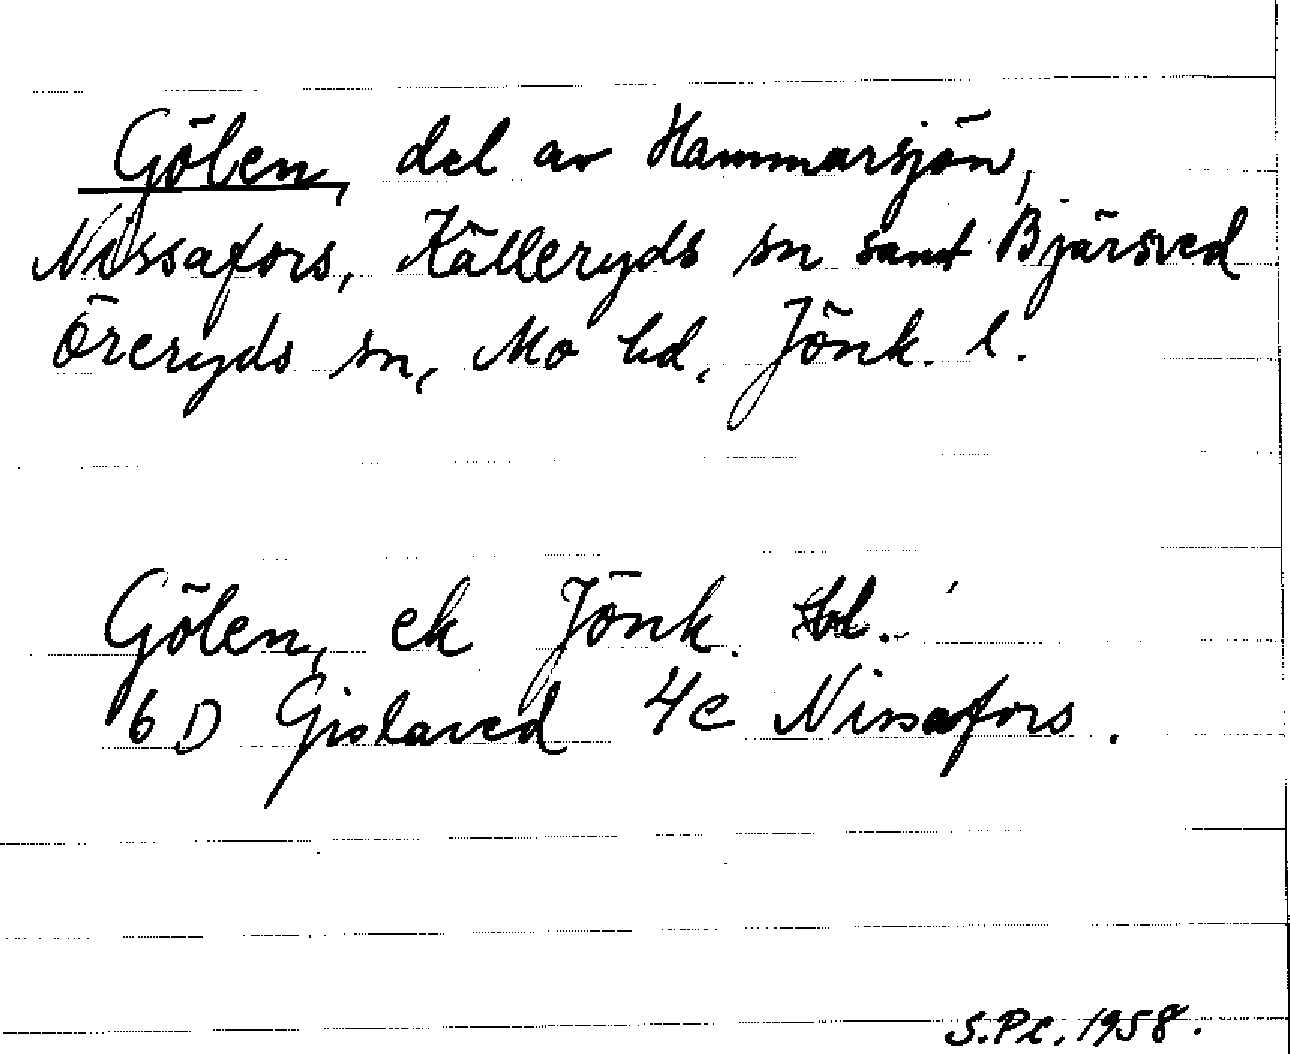 Gölen, del av Hammarsjön,
Nissafors, Källeryds sn samt Bjärsved
Öreryds sn, Mo hd, Jönk. l.
Gölen, ek Jönk.
6 D Gislaved 4c Nissafors.
S.Pl. 1958.